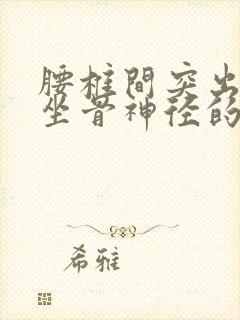 腰椎間突出
坐骨神径的
希雅